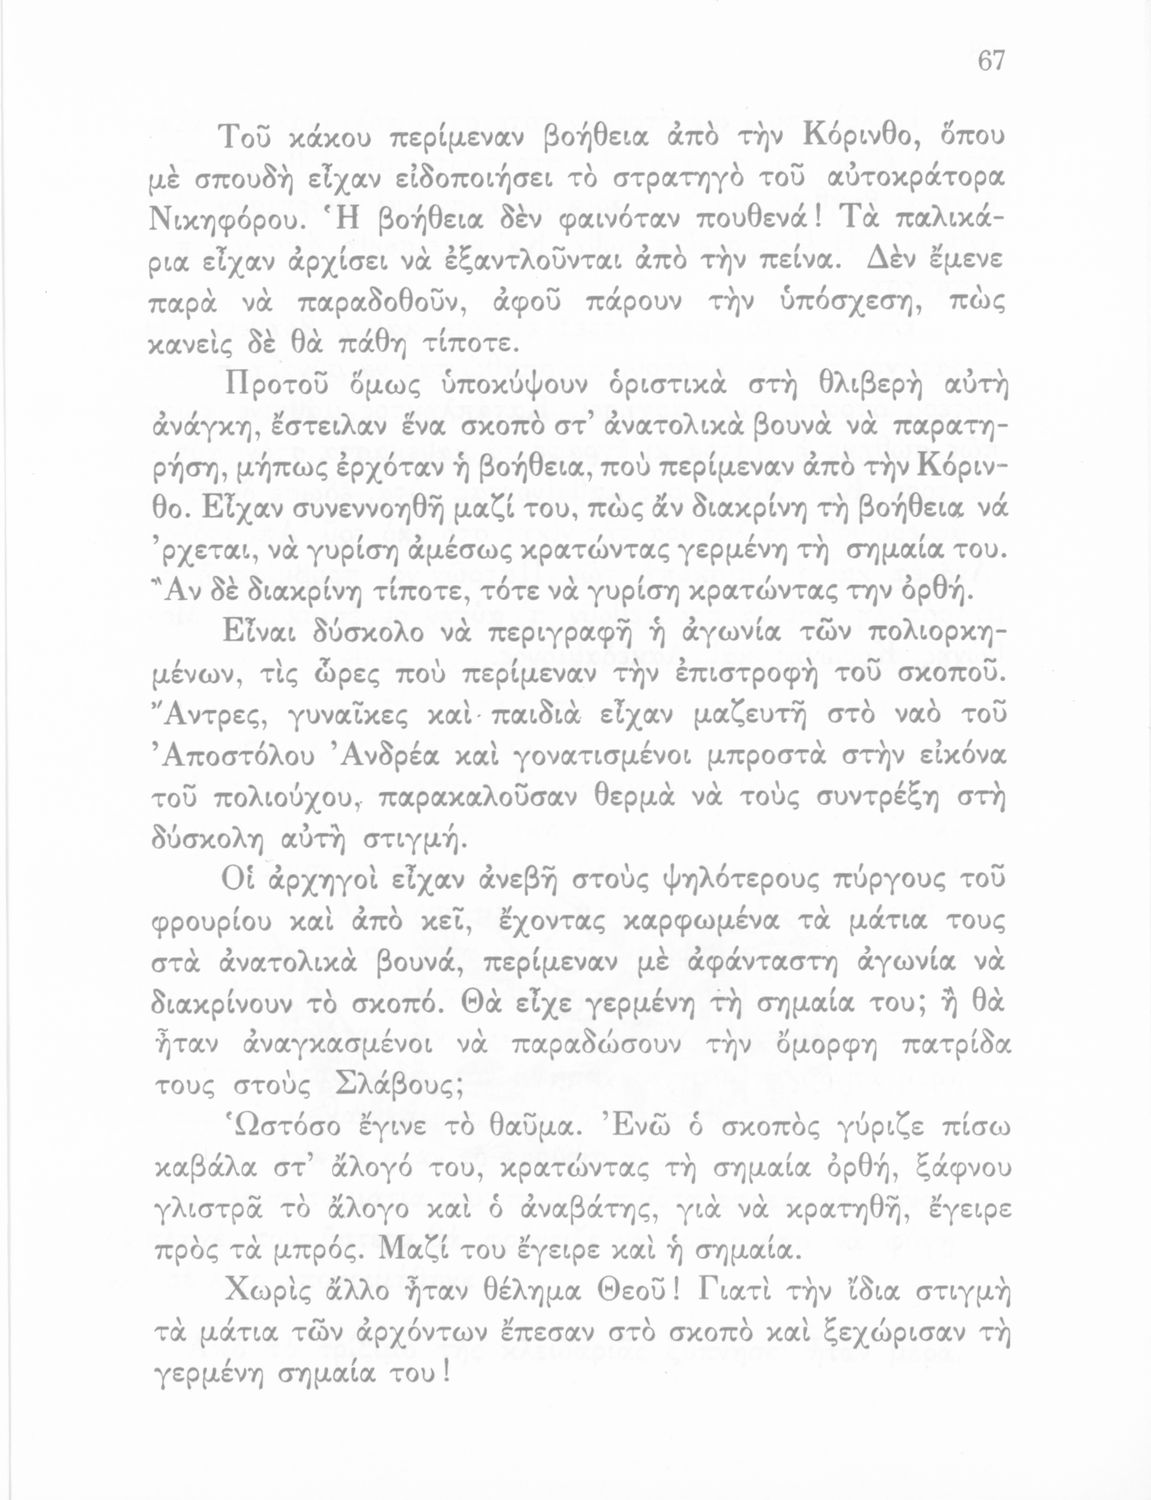 67
Τοῦ κάκου περίμεναν βοήθεια ἀπὸ τὴν Κόρινθο, ὅπου
μὲ σπουδὴ εἶχαν εἰδοποιήσει τὸ στρατηγὸ τοῦ αὐτοκράτορα
Νικηφόρου. Ἡ βοήθεια δὲν φαινόταν πουθενά! Τὰ παλικά-
ρια εἶχαν ἀρχίσει νὰ ἐξαντλοῦνται ἀπὸ τὴν πείνα. Δὲν ἔμενε
παρὰ νὰ παραδοθοῦν, ἀφοῦ πάρουν τὴν ὑπόσχεση, πὼς
κανεὶς δὲ θὰ πάθη τίποτε.
Προτοῦ ὅμως ὑποκύψουν ὁριστικὰ στὴ θλιβερὴ αὐτὴ
ἀνάγκη, ἔστειλαν ἕνα σκοπὸ στ’ ἀνατολικὰ βουνὰ νὰ παρατη-
ρήση, μήπως ἐρχόταν ἡ βοήθεια, ποὺ περίμεναν ἀπὸ τὴν Κόριν-
θο. Εἶχαν συνεννοηθῆ μαζί του, πὼς ἄν διακρίνη τὴ βοήθεια νά
’ρχεται, νὰ γυρίση ἀμέσως κρατώντας γερμένη τὴ σημαία του.
Ἂν δὲ διακρίνη τίποτε, τότε νὰ γυρίση κρατώντας την ὀρθή.
Εἶναι δύσκολο νὰ περιγραφῆ ἡ ἀγωνία τῶν πολιορκη-
μένων, τὶς ὧρες ποὺ περίμεναν τὴν ἐπιστροφὴ τοῦ σκοποῦ.
Ἄντρες, γυναῖκες καὶ παιδιὰ εἶχαν μαζευτῆ στὸ ναὸ τοῦ
Ἀποστόλου Ἀνδρέα καὶ γονατισμένοι μπροστὰ στὴν εἰκόνα
τοῦ πολιούχου, παρακαλοῦσαν θερμὰ νὰ τοὺς συντρέξη στὴ
δύσκολη αὐτὴ στιγμή.
Οἱ ἀρχηγοὶ εἶχαν ἀνεβῆ στοὺς ψηλότερους πύργους τοῦ
φρουρίου καὶ ἀπὸ κεῖ, ἔχοντας καρφωμένα τὰ μάτια τους
στὰ ἀνατολικὰ βουνά, περίμεναν μὲ ἀφάνταστη ἀγωνία νὰ
διακρίνουν τὸ σκοπό. Θὰ εἶχε γερμένη τὴ σημαία του; ἢ θὰ
ἦταν ἀναγκασμένοι νὰ παραδώσουν τὴν ὄμορφη πατρίδα
τους στοὺς Σλάβους;
Ὡστόσο ἔγινε τὸ θαῦμα. Ἐνῶ ὁ σκοπὸς γύριζε πίσω
καβάλα στ’ ἄλογό του, κρατώντας τὴ σημαία ὀρθή, ξάφνου
γλιστρᾶ τὸ ἄλογο καὶ ὁ ἀναβάτης, γιὰ νὰ κρατηθῆ, ἔγειρε
πρὸς τὰ μπρός. Μαζί του ἔγειρε καὶ ἡ σημαία.
Χωρὶς ἄλλο ἦταν θέλημα Θεοῦ! Γιατὶ τὴν ἴδια στιγμὴ
τὰ μάτια τῶν ἀρχόντων ἔπεσαν στὸ σκοπὸ καὶ ξεχώρισαν τὴ
γερμένη σημαία του!